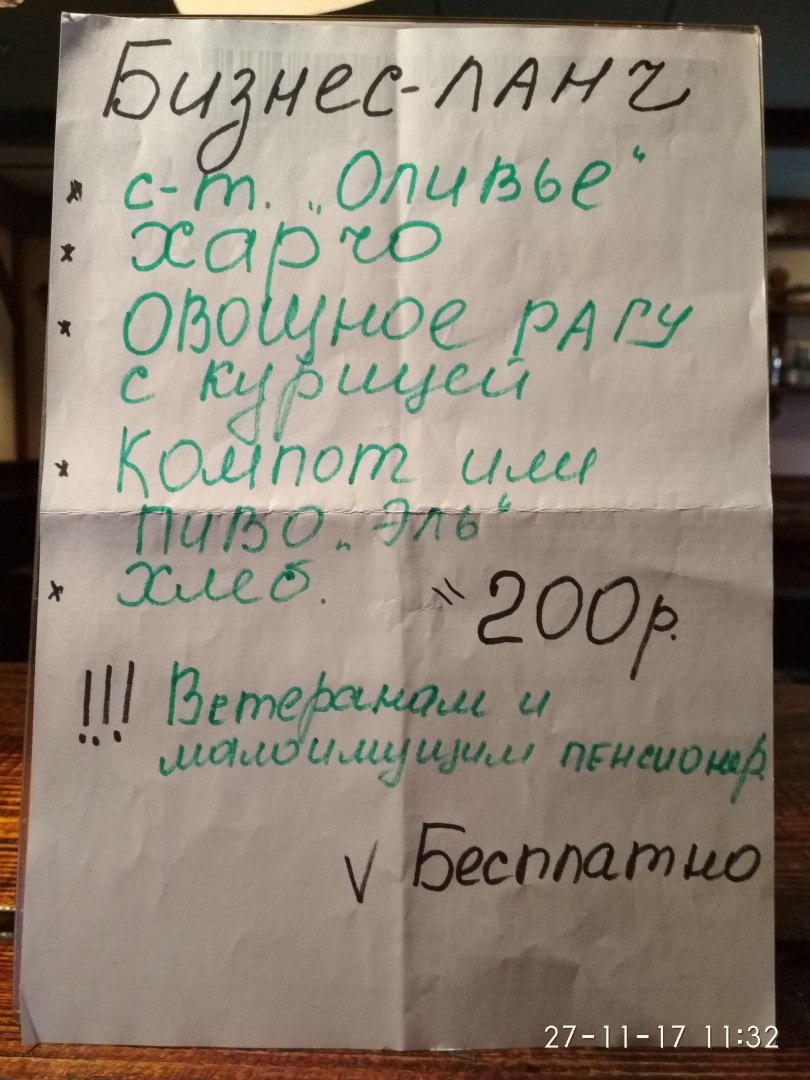 Бизнес-ланч
* с-т. „Оливье“
* Харчо
* Овощное рагу
с курицей
* Компот или
пиво „Эль“
* Хлеб.
= 200р.
!!! Ветеранам и
малоимущим пенсионер
√ Бесплатно
27-11-17 11:32